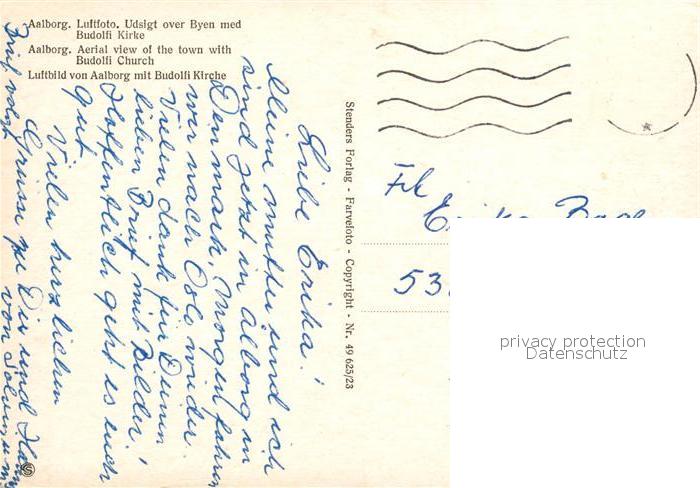 Aalborg. Luftfoto. Udsigt over Byen med
Budolfi Kirke
Aalborg. Aerial view of the town with
Budolfi Church
Luftbild von Aalborg mit Budolfi Kirche
Stenders Forlag - Farvefoto - Copyright - Nr. 49 625/23
Liebe Erika!
Meine mutter und ich
sind jetzt in alborg in
Denmark. Morgen fahren
wir nach Oslo wieder.
Vielen dank für Deinen
lieben Brief mit Bilder!
Hoffentlich geht es euch
gut.
Vielen herzlichen
Grüsse zu Dir und
von
Brief folgt
Frl
Erika
53
privacy protection
Datenschutz
S